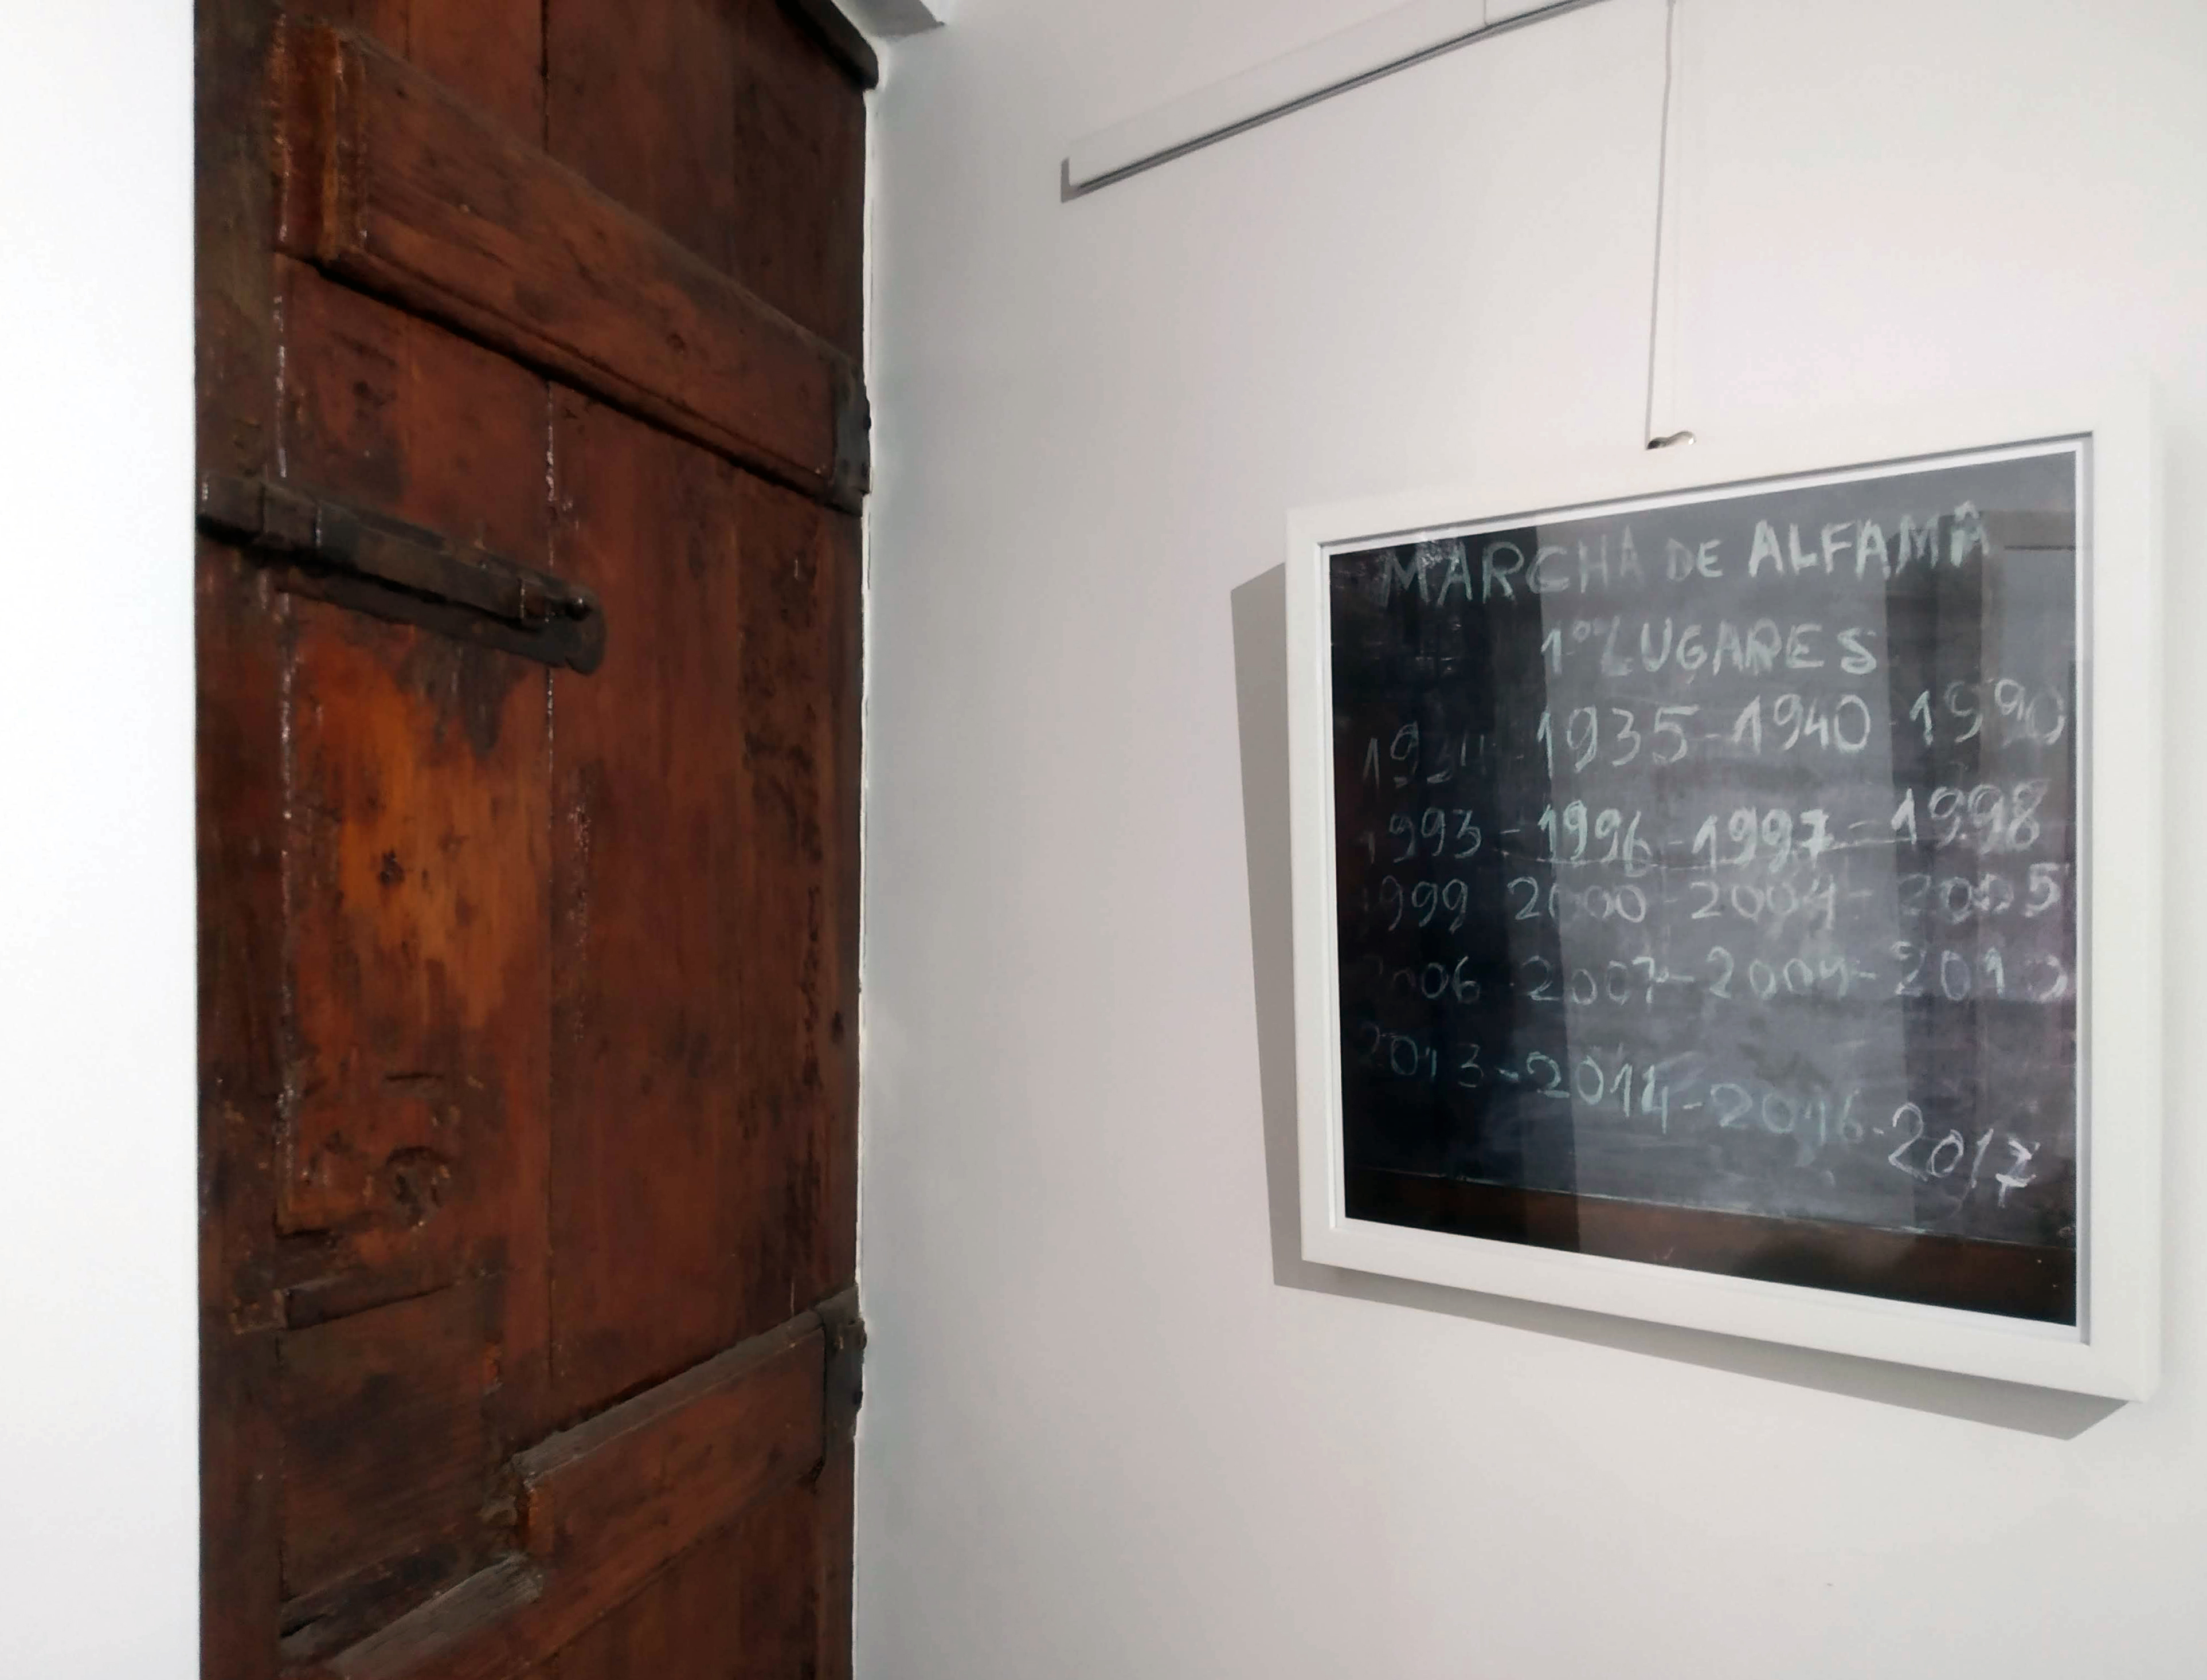 MARCHA DE ALFAMA
1ºˢ LUGARES
1935 - 1940 - 1990
1993 - 1996 - 1997 - 1998
1999 2000 - 2004 - 2005
2006 - 2007 - 2009 - 2010
2013 - 2014 - 2016 - 2017